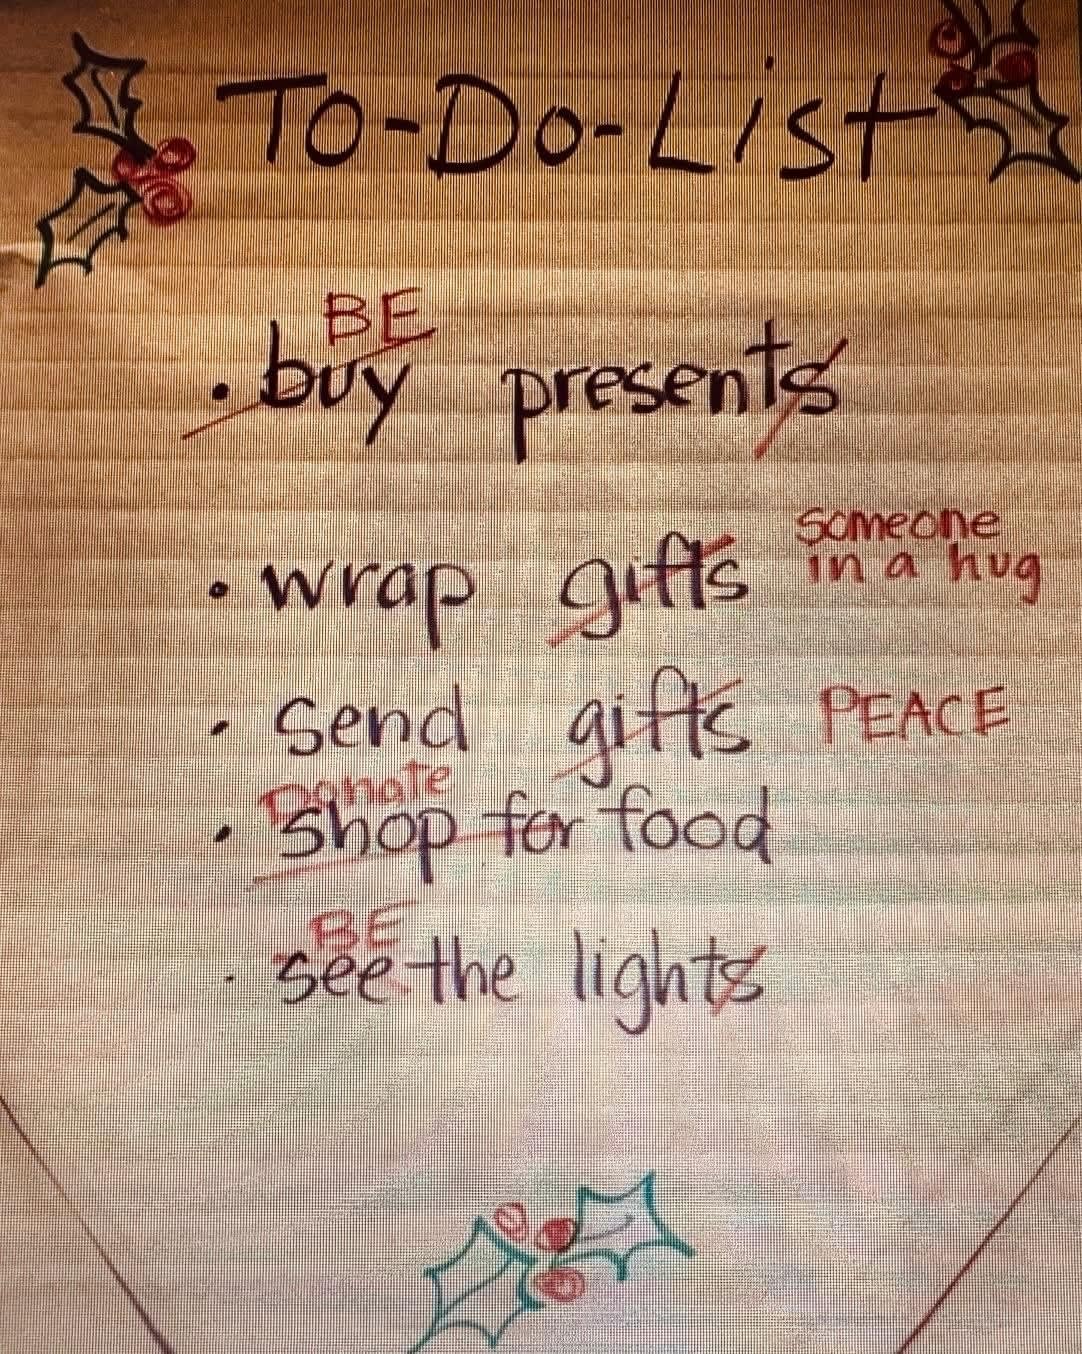 To-Do-List
BE
• buy presents
• wrap gifts someone
in a hug
• send gifts PEACE
Donate
• Shop for food
BE
• see the lights